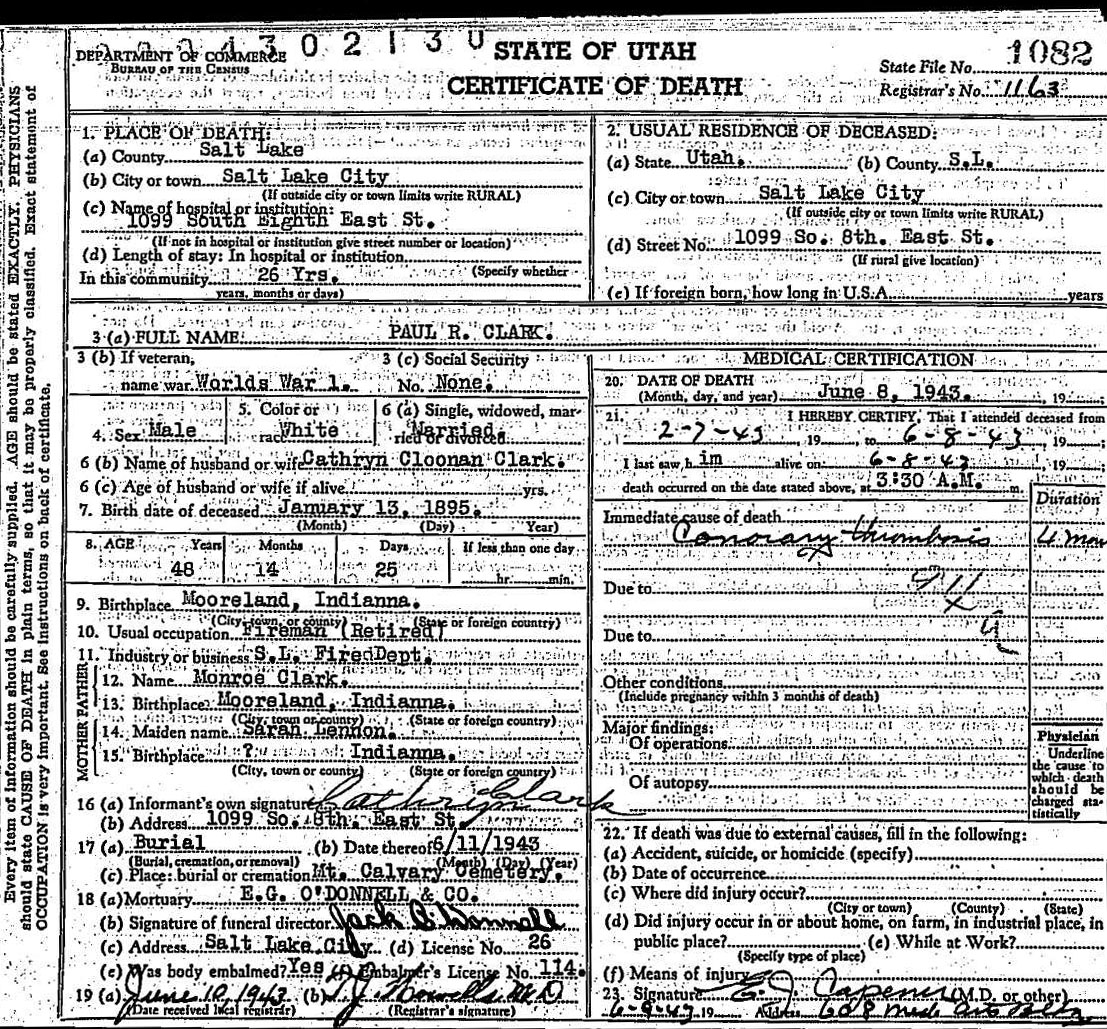 Every item of information should be carefully supplied. AGE should be stated EXACTLY. PHYSICIANS
should state CAUSE OF DEATH in plain terms, so that it may be properly classified. Exact statement of
OCCUPATION is very important. See instructions on back of certificate.
4302130
DEPARTMENT OF COMMERCE
BUREAU OF THE CENSUS
STATE OF UTAH
CERTIFICATE OF DEATH
State File No. 1082
Registrar's No. 1163
1. PLACE OF DEATH:
(a) County Salt Lake
(b) City or town Salt Lake City
(If outside city or town limits write RURAL)
(c) Name of hospital or institution:
1099 South Eighth East St.
(If not in hospital or institution give street number or location)
(d) Length of stay: In hospital or institution
(Specify whether
In this community 26 Yrs.
years, months or days)
2. USUAL RESIDENCE OF DECEASED:
(a) State Utah. (b) County S.L.
(c) City or town Salt Lake City
(If outside city or town limits write RURAL)
(d) Street No. 1099 So. 8th. East St.
(If rural give location)
(e) If foreign born, how long in U.S.A. years
3 (a) FULL NAME: PAUL R. CLARK.
3 (b) If veteran, name war Worlds War 1.
3 (c) Social Security No. None.
4. Sex Male
5. Color or race White
6 (a) Single, widowed, married or divorced Married.
6 (b) Name of husband or wife Cathryn Cloonan Clark.
6 (c) Age of husband or wife if alive yrs.
7. Birth date of deceased January 13, 1895.
(Month) (Day) Year)
8. AGE Years Months Days If less than one day
48 14 25 hr. min.
9. Birthplace Mooreland, Indianna.
(City, town, or county) (State or foreign country)
10. Usual occupation Fireman (Retired)
11. Industry or business S.L. FiredDept.
MOTHER FATHER
12. Name Monroe Clark.
13. Birthplace Mooreland, Indianna.
(City, town or county) (State or foreign country)
14. Maiden name Sarah Lennon.
15. Birthplace ? Indianna.
(City, town or county) (State or foreign country)
16 (a) Informant's own signature Cathryn Clark
(b) Address 1099 So. 8th. East St.
17 (a) Burial (b) Date thereof 6/11/1943
(Burial, cremation, or removal) (Month) (Day) (Year)
(c) Place: burial or cremation Mt. Calvary Cemetery.
18 (a) Mortuary E.G. O'DONNELL & CO.
(b) Signature of funeral director Jack O'Donnell
(c) Address Salt Lake City (d) License No. 26
(e) Was body embalmed? Yes (f) Embalmer's License No. 114.
19 (a) June 10, 1943 (b) T.J. Howells M.D
(Date received local registrar) (Registrar's signature)
MEDICAL CERTIFICATION
20. DATE OF DEATH
(Month, day, and year) June 8, 1943. , 19
21. I HEREBY CERTIFY, That I attended deceased from
2-7-43, 19 , to 6-8-43, 19 ;
I last saw h im alive on 6-8-43, 19 ;
death occurred on the date stated above, at 3:30 A.M. m.
Duration
Immediate cause of death
Conorary thrombosis 4 mon
Due to
Due to
Other conditions
(Include pregnancy within 3 months of death)
Major findings:
Of operations
Of autopsy
Physician
Underline
the cause to
which death
should be
charged sta-
tistically
22. If death was due to external causes, fill in the following:
(a) Accident, suicide, or homicide (specify)
(b) Date of occurrence
(c) Where did injury occur?
(City or town) (County) (State)
(d) Did injury occur in or about home, on farm, in industrial place, in
public place? (e) While at Work?
(Specify type of place)
(f) Means of injury
23. Signature E. J. Capener (M.D. or other)
6-9-43 19 Address 608 Med. Arts Bldg